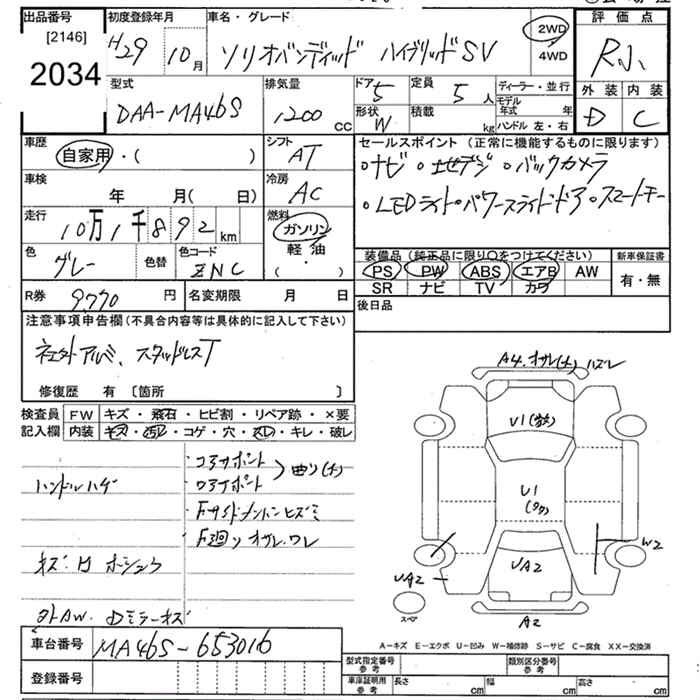 出品番号 初度登録年月 車名・グレード 評価点
[2146]
2034
H29 10月 ソリオバンディッド ハイブリッドSV 2WD R小
4WD
型式 排気量 ドア 定員 ディーラー・並行 外装 内装
DAA-MA46S 1200 cc 5 5人 モデル年式 年 D C
形状 積載 ハンドル 左・右
W kg
車歴 シフト セールスポイント (正常に機能するものに限ります)
自家用・( ) AT
・ナビ ・地デジ ・バックカメラ
車検 冷房
年 月( 日) AC
・LEDライト・パワースライドドア・スマートキー
走行 燃料
10万1千892km ガソリン
軽油
( )
色 色替 色コード
グレー ZNC
装備品 (純正品に限り○をつけてください) 新車保証書
PS PW ABS エアB AW 有・無
SR ナビ TV カワ
R券 9770円 名変期限 月 日
後日品
注意事項申告欄(不具合内容等は具体的に記入して下さい)
社外アルミ、スタッドレスT
修復歴 有〔箇所 〕
検査員 FW キズ・飛石・ヒビ割・リペア跡・×要
記入欄 内装 キズ・汚レ・コゲ・穴・スレ・キレ・破レ
・コアサポート
ハンドルハゲ
・ロアサポート 曲り(大)
・Fサイドメンバーヒズミ
・F廻りオサレ.ワレ
外AW. Dミラーキズ
A4.オサレ(大)ハズレ
U1
U1
W2
UA2
UA2
A2
スペア
A-キズ E-エクボ U-凹み W-補修跡 S-サビ C-腐食 XX-交換済
車台番号 MA46S-653016
登録番号
型式指定番号 参考 類別区分番号 参考
車庫証明用 参考 長さ cm 幅 cm 高さ cm